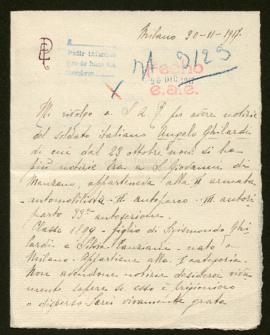 Milano 20-11-917.
Nº 2129
Fecho
e.a.e.
Mi rivolgo a S. A R per avere notizie
del soldato italiano Angelo Ghilardi
di cui dal 22 ottobre non si ha
più notizie Era a S. Giovanni di
Manzano, appartiene alla II armata
automobilista II autoparco
parto 33ª autosezione.
Classe 1899 figlio di Sigismondo Ghi-
lardi e Silvia nato a
Milano. Appartiene alla I categoria.
Non avendone notizie desidero viva-
mente sapere se esso è prigioniero
o disperso Sarei vivamente grata